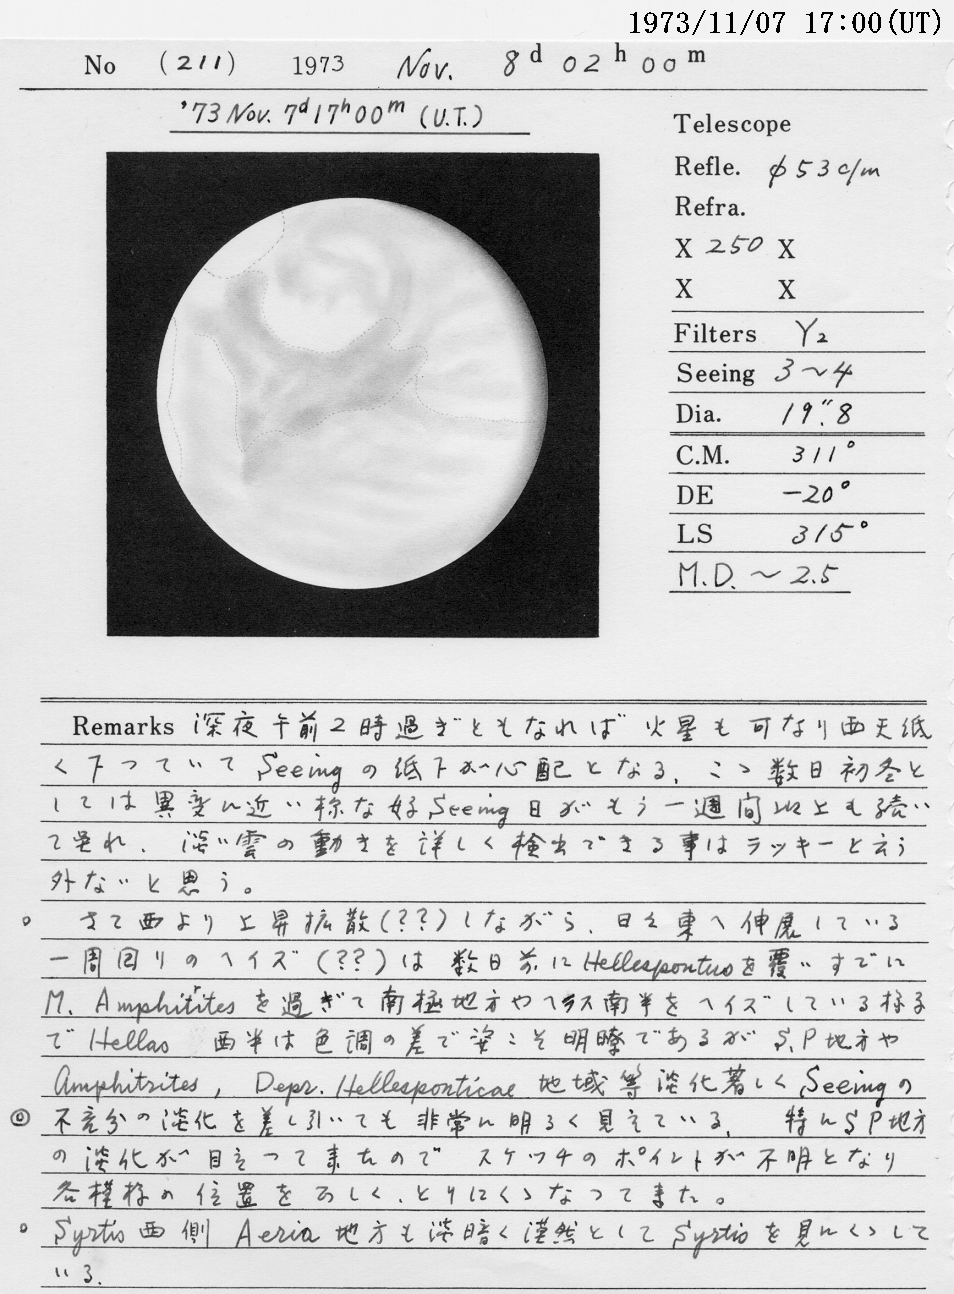 1973/11/07 17:00(UT)
No (211) 1973 Nov. 8d 02h 00m
'73 Nov. 7d 17h 00m (U.T.)
Telescope
Refle. φ53 c/m
Refra.
X 250 X
X X
Filters Y2
Seeing 3～4
Dia. 19."8
C.M. 311°
DE -20°
LS 315°
M.D. ～2.5
Remarks 深夜午前2時過ぎともなれば火星も可なり西天紙
く下っていて Seeing の紙下が心配となる、ここ数日初冬と
しては異変に近い様な好Seeing日がもう一週間以上も続い
て呉れ、淡い雲の動きを詳しく検出できる事はラッキーと云う
外ないと思う。
○ さて西より上昇拡散(??)しながら、日々東へ伸展している
一周回りのヘイズ(??)は数日前にHellespontusを覆いすでに
M. Amphitritesを過ぎて南極地方やヘラス南半をヘイズしている様子
で Hellas 西半は色調の差で姿こそ明瞭であるが S.P地方や
Amphitrites, Depr. Hellesponticae 地域等淡化著しく Seeingの
◎ 不充分の淡化を差し引いても非常に明るく見えている、 特にS.P地方
の淡化が目立って来たので スケッチのポイントが不明となり
各模様の位置を するしく、とりにくくなって来た。
○ Syrtis西側 Aeria 地方も淡暗く漠然としてSyrtisを見にくくして
いる、